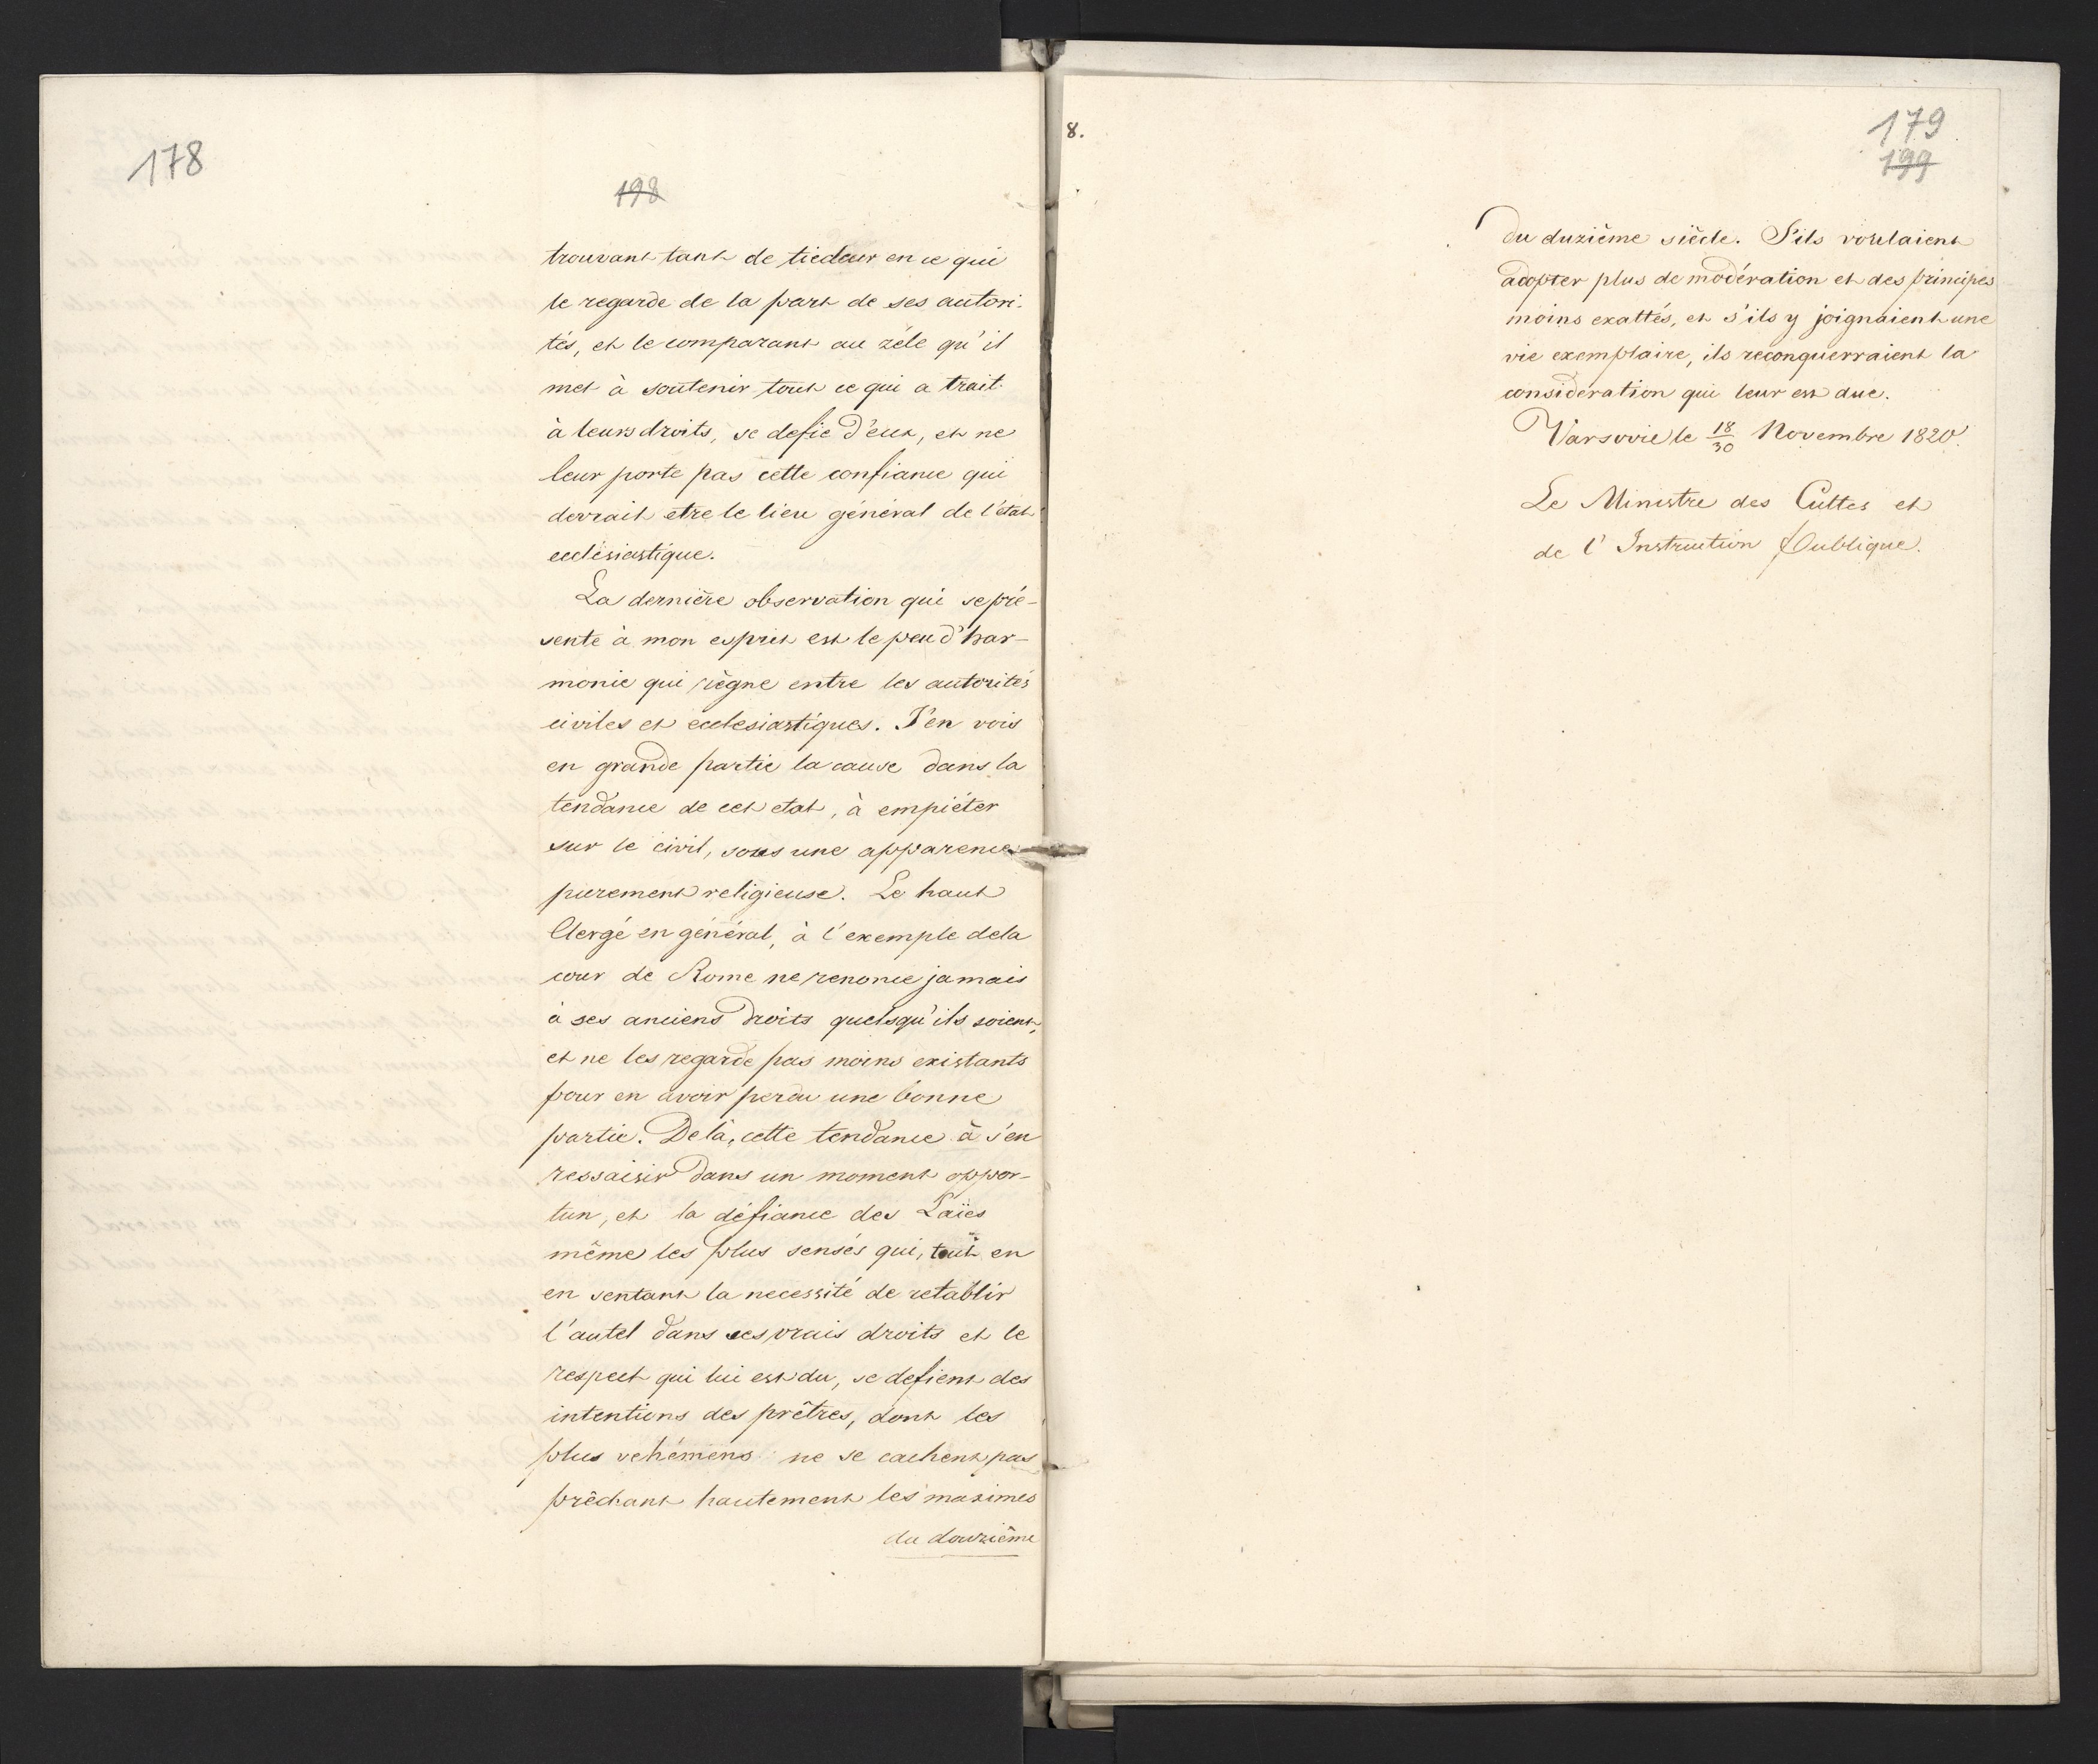 178
198
trouvant tant de tiedeur en ce qui
le regarde de la part de ses autori-
tés, et le comparant au zéle qu'il
met à soutenir tout ce qui a trait
à leurs droits, se defie d'eux, et ne
leur porte pas cette confiance qui
devrait etre le lien général de l'état
ecclésiastique.
La dernière observation qui se pré-
sente à mon esprit est le peu d'har-
monie qui règne entre les autorités
civiles et ecclesiastiques. J'en vois
en grande partie la cause dans la
tendance de cet etat, à empiéter
sur le civil, sous une apparence
purement religieuse. Le haut
Clergé en général, à l'exemple de la
cour de Rome ne renonce jamais
à ses anciens droits quels qu'ils soient,
et ne les regarde pas moins existants
pour en avoir perdu une bonne
partie. De là, cette tendance à s'en
ressaisir dans un moment oppor-
tun, et la défiance des Laïcs
même les plus sensés qui, tout en
en sentant la necessité de retablir
l'autel dans ses vrais droits et le
respect qui lui est du, se defient des
intentions des prêtres, dont les
plus vehémens ne se cachent pas
prêchant hautement les maximes
du douzième
8.
179
199
du duzième siècle. S'ils voulaient
adopter plus de modération et des principes
moins exaltés, et s'ils y joignaient une
vie exemplaire, ils reconquerraient la
consideration qui leur est due.
Varsovie le 18/30 Novembre 1820.
Le Ministre des Cultes et
de l'Instruction Publique.